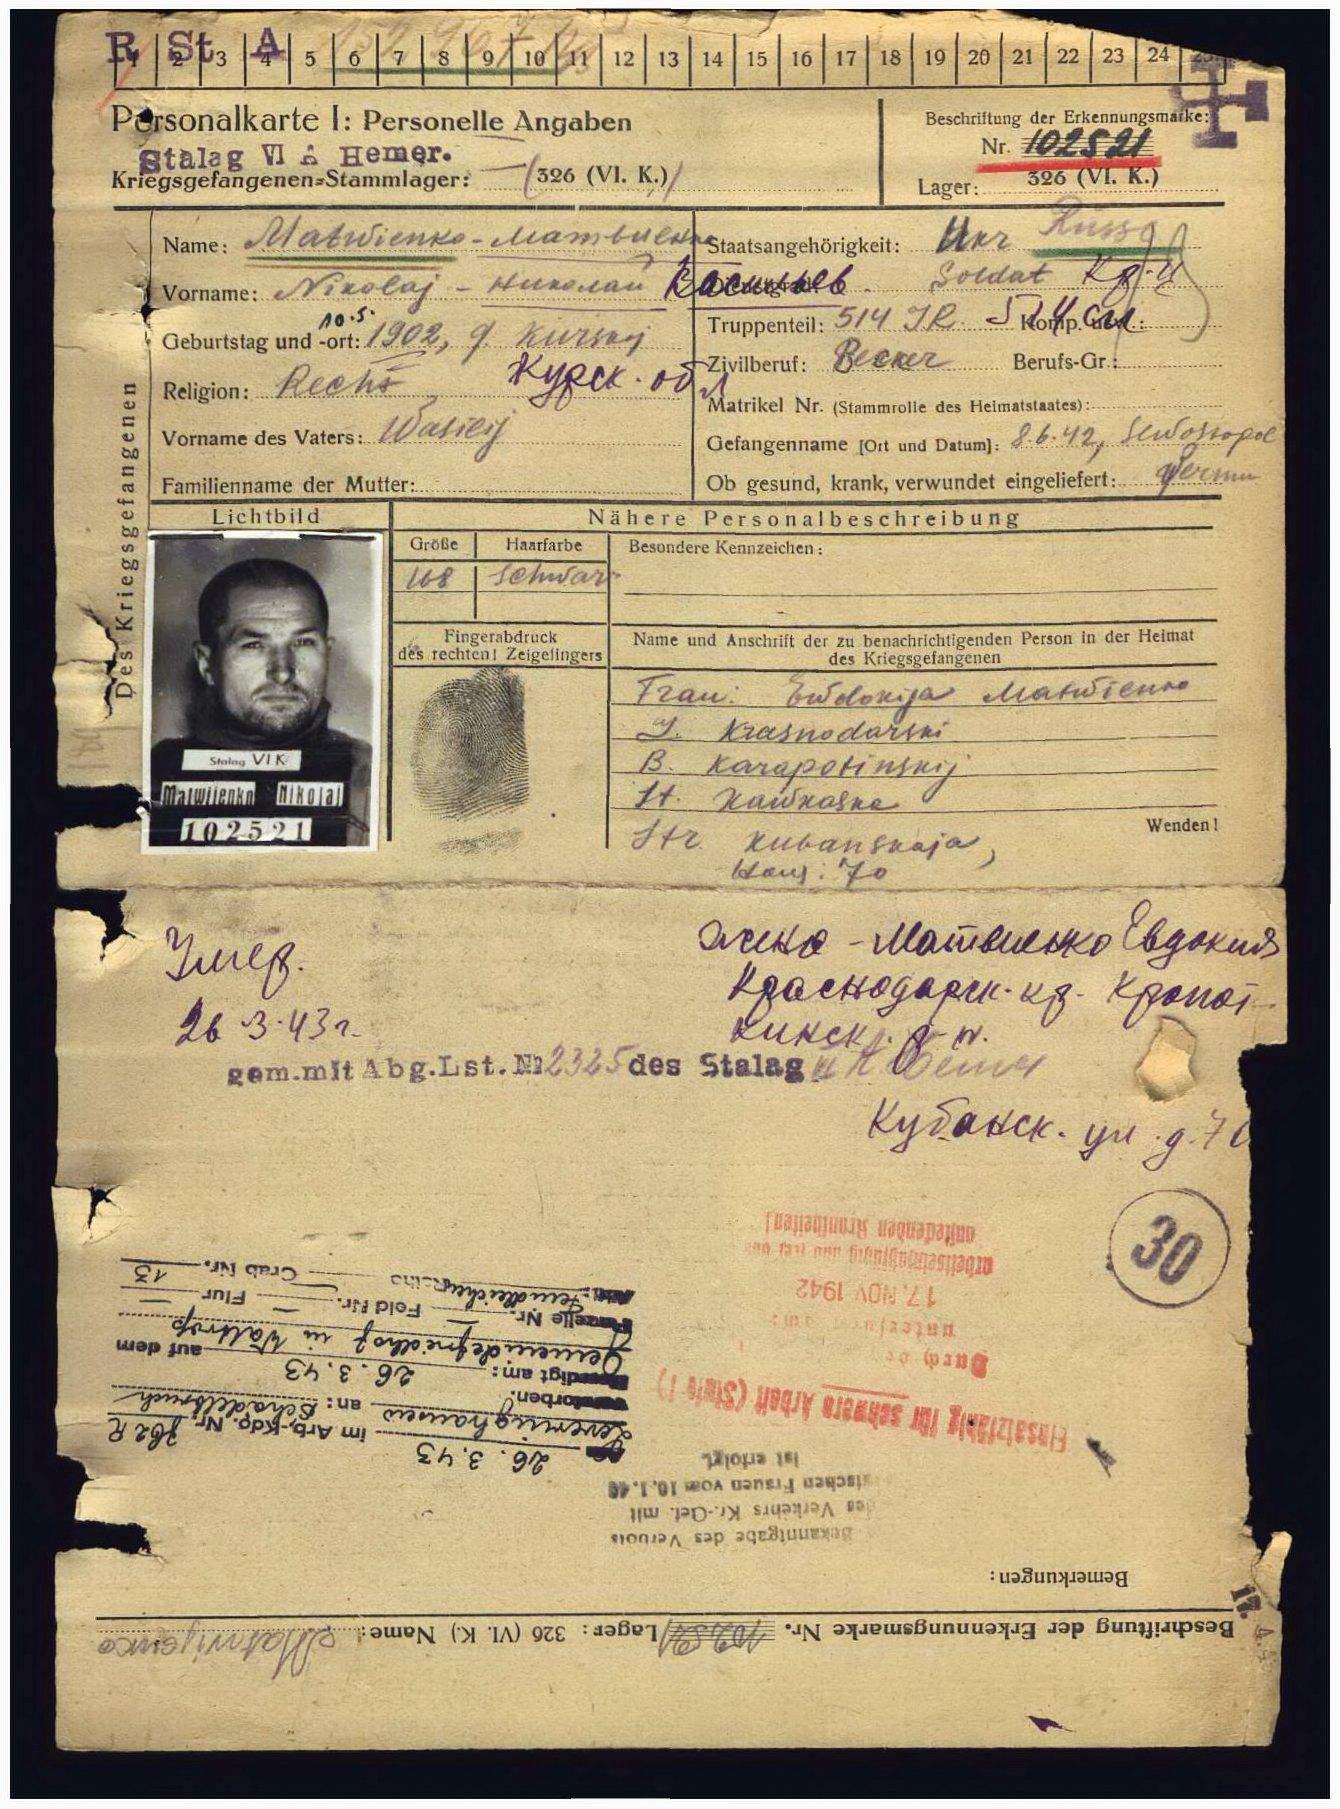 R St A
1 2 3 4 5 6 7 8 9 10 11 12 13 14 15 16 17 18 19 20 21 22 23 24 25
Personalkarte I: Personelle Angaben
Stalag VI A Hemer.
Kriegsgefangenen-Stammlager: (326 (VI. K.)/
Beschriftung der Erkennungsmarke:
Nr. 102521
Lager: 326 (VI. K.)
Des Kriegsgefangenen
Name: Matwienko - Матвиенко
Vorname: Nikolaj - Николай Васильев.
Geburtstag und -ort: 10.5. 1902, g. Kurskij
Курск. обл
Religion: Rechts
Vorname des Vaters: Wasilij
Familienname der Mutter:
Staatsangehörigkeit: Ukr Russe
Soldat Кр-ц
Truppenteil: 514 IR Komp. usw.: 514 сп
Zivilberuf: Becker Berufs-Gr.:
Matrikel Nr. (Stammrolle des Heimatstaates):
Gefangenname [Ort und Datum]: 8.6.42, Sewostopol
Ob gesund, krank, verwundet eingeliefert:
Lichtbild
Stalag VI K
Matwijenko Nikolai
102521
Nähere Personalbeschreibung
Größe Haarfarbe Besondere Kennzeichen:
168 schwarz
Fingerabdruck
des rechten! Zeigefingers
Name und Anschrift der zu benachrichtigenden Person in der Heimat
des Kriegsgefangenen
Frau: Ewdokija Matwienko
G. Krasnodarski
B. Karapotinskij
St. Kawkaska
Wenden!
Str. Kubanskaja,
Haus: 70
Умер.
26.3.43 г.
жена - Матвиенко Евдокия
Краснодарск. кр. Кропот-
кинск. р-н.
gem. mit Abg. Lst. № 2325 des Stalag VI A Hemer
Кубанск. ул. д. 70
30
Beschriftung der Erkennungsmarke Nr. 102521 Lager: 326 (VI. K.) Name: Matwijenko
17.
Bemerkungen:
Bekanntgabe des Verbots
des Verkehrs Kr.-Gef. mit
deutschen Frauen vom 10.1.40
ist erfolgt.
Einsatzfähig für schwere Arbeit (Stufe I)
Durch
untersucht am:
17. NOV. 1942
arbeitseinsatzfähig und frei von
ansteckenden Krankheiten!
26.3.43 im Arb.-Kdo. Nr. 762 R
Leveringhausen an: Schädelbruch
verstorben.
Beerdigt am: 26.3.43 auf dem
Gemeindefriedhof in Waltrop
Parzelle Nr. — Feld Nr. — Flur —
Reihe Grab Nr. 13